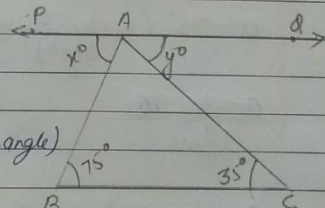 P A Q
x° y°
angle)
75° 35°
B C